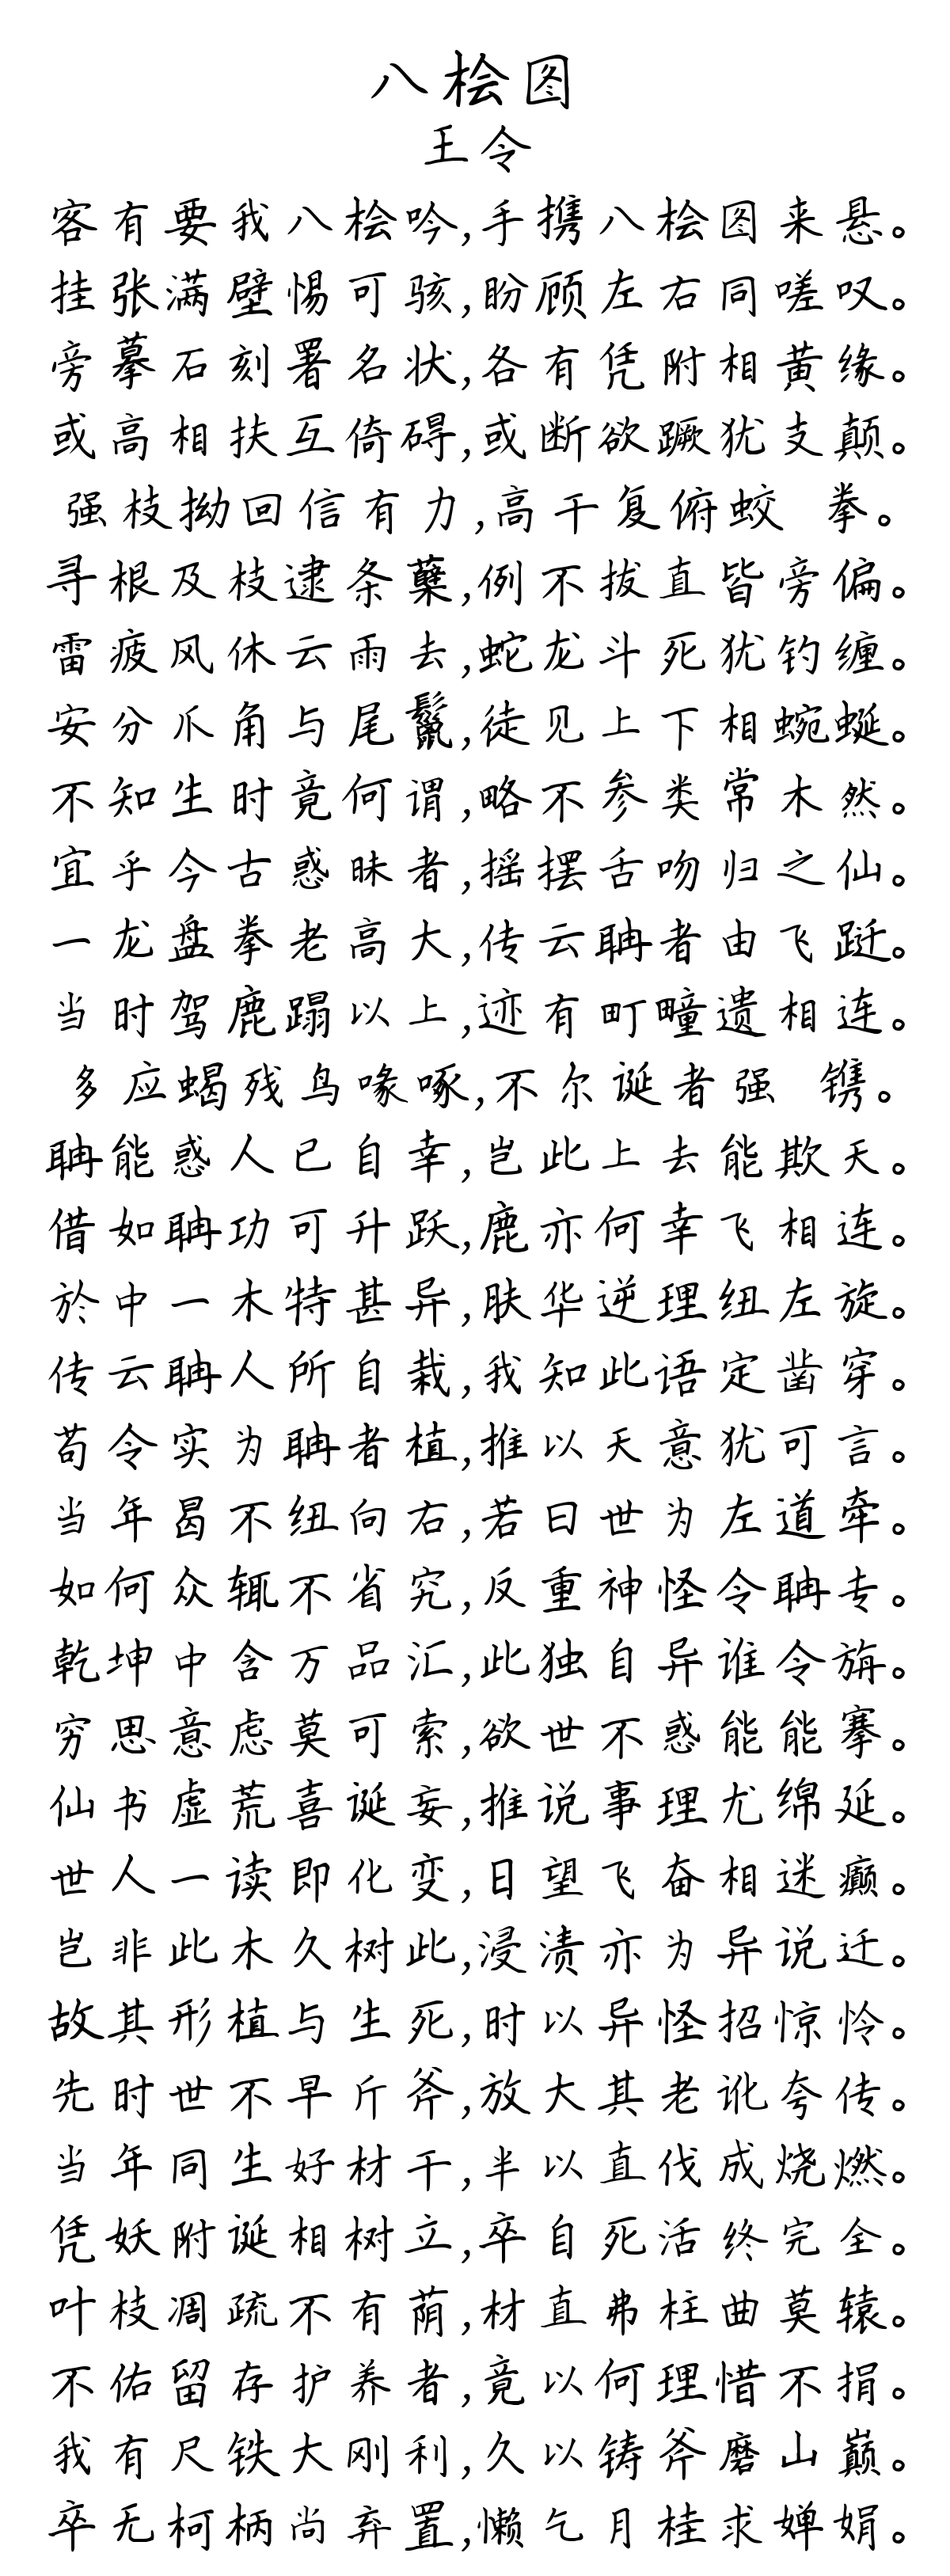 八桧图
王令
客有要我八桧吟,手携八桧图来悬。
挂张满壁惕可骇,盼顾左右同嗟叹。
旁摹石刻署名状,各有凭附相黄缘。
或高相扶互倚碍,或断欲蹶犹支颠。
强枝拗回信有力,高干复俯蛟 拳。
寻根及枝逮条蘖,例不拔直皆旁偏。
雷疲风休云雨去,蛇龙斗死犹钓缠。
安分爪角与尾鬣,徒见上下相蜿蜒。
不知生时竟何谓,略不参类常木然。
宜乎今古惑昧者,摇摆舌吻归之仙。
一龙盘拳老高大,传云聃者由飞跹。
当时驾鹿蹋以上,迹有町疃遗相连。
多应蝎残鸟喙啄,不尔诞者强 镌。
聃能惑人已自幸,岂此上去能欺天。
借如聃功可升跃,鹿亦何幸飞相连。
於中一木特甚异,肤华逆理纽左旋。
传云聃人所自栽,我知此语定凿穿。
苟令实为聃者植,推以天意犹可言。
当年曷不纽向右,若曰世为左道牵。
如何众辄不省究,反重神怪令聃专。
乾坤中含万品汇,此独自异谁令旃。
穷思意虑莫可索,欲世不惑能能搴。
仙书虚荒喜诞妄,推说事理尤绵延。
世人一读即化变,日望飞奋相迷癫。
岂非此木久树此,浸渍亦为异说迁。
故其形植与生死,时以异怪招惊怜。
先时世不早斤斧,放大其老讹夸传。
当年同生好材干,半以直伐成烧燃。
凭妖附诞相树立,卒自死活终完全。
叶枝凋疏不有荫,材直弗柱曲莫辕。
不佑留存护养者,竟以何理惜不捐。
我有尺铁大刚利,久以铸斧磨山巅。
卒无柯柄尚弃置,懒乞月桂求婵娟。